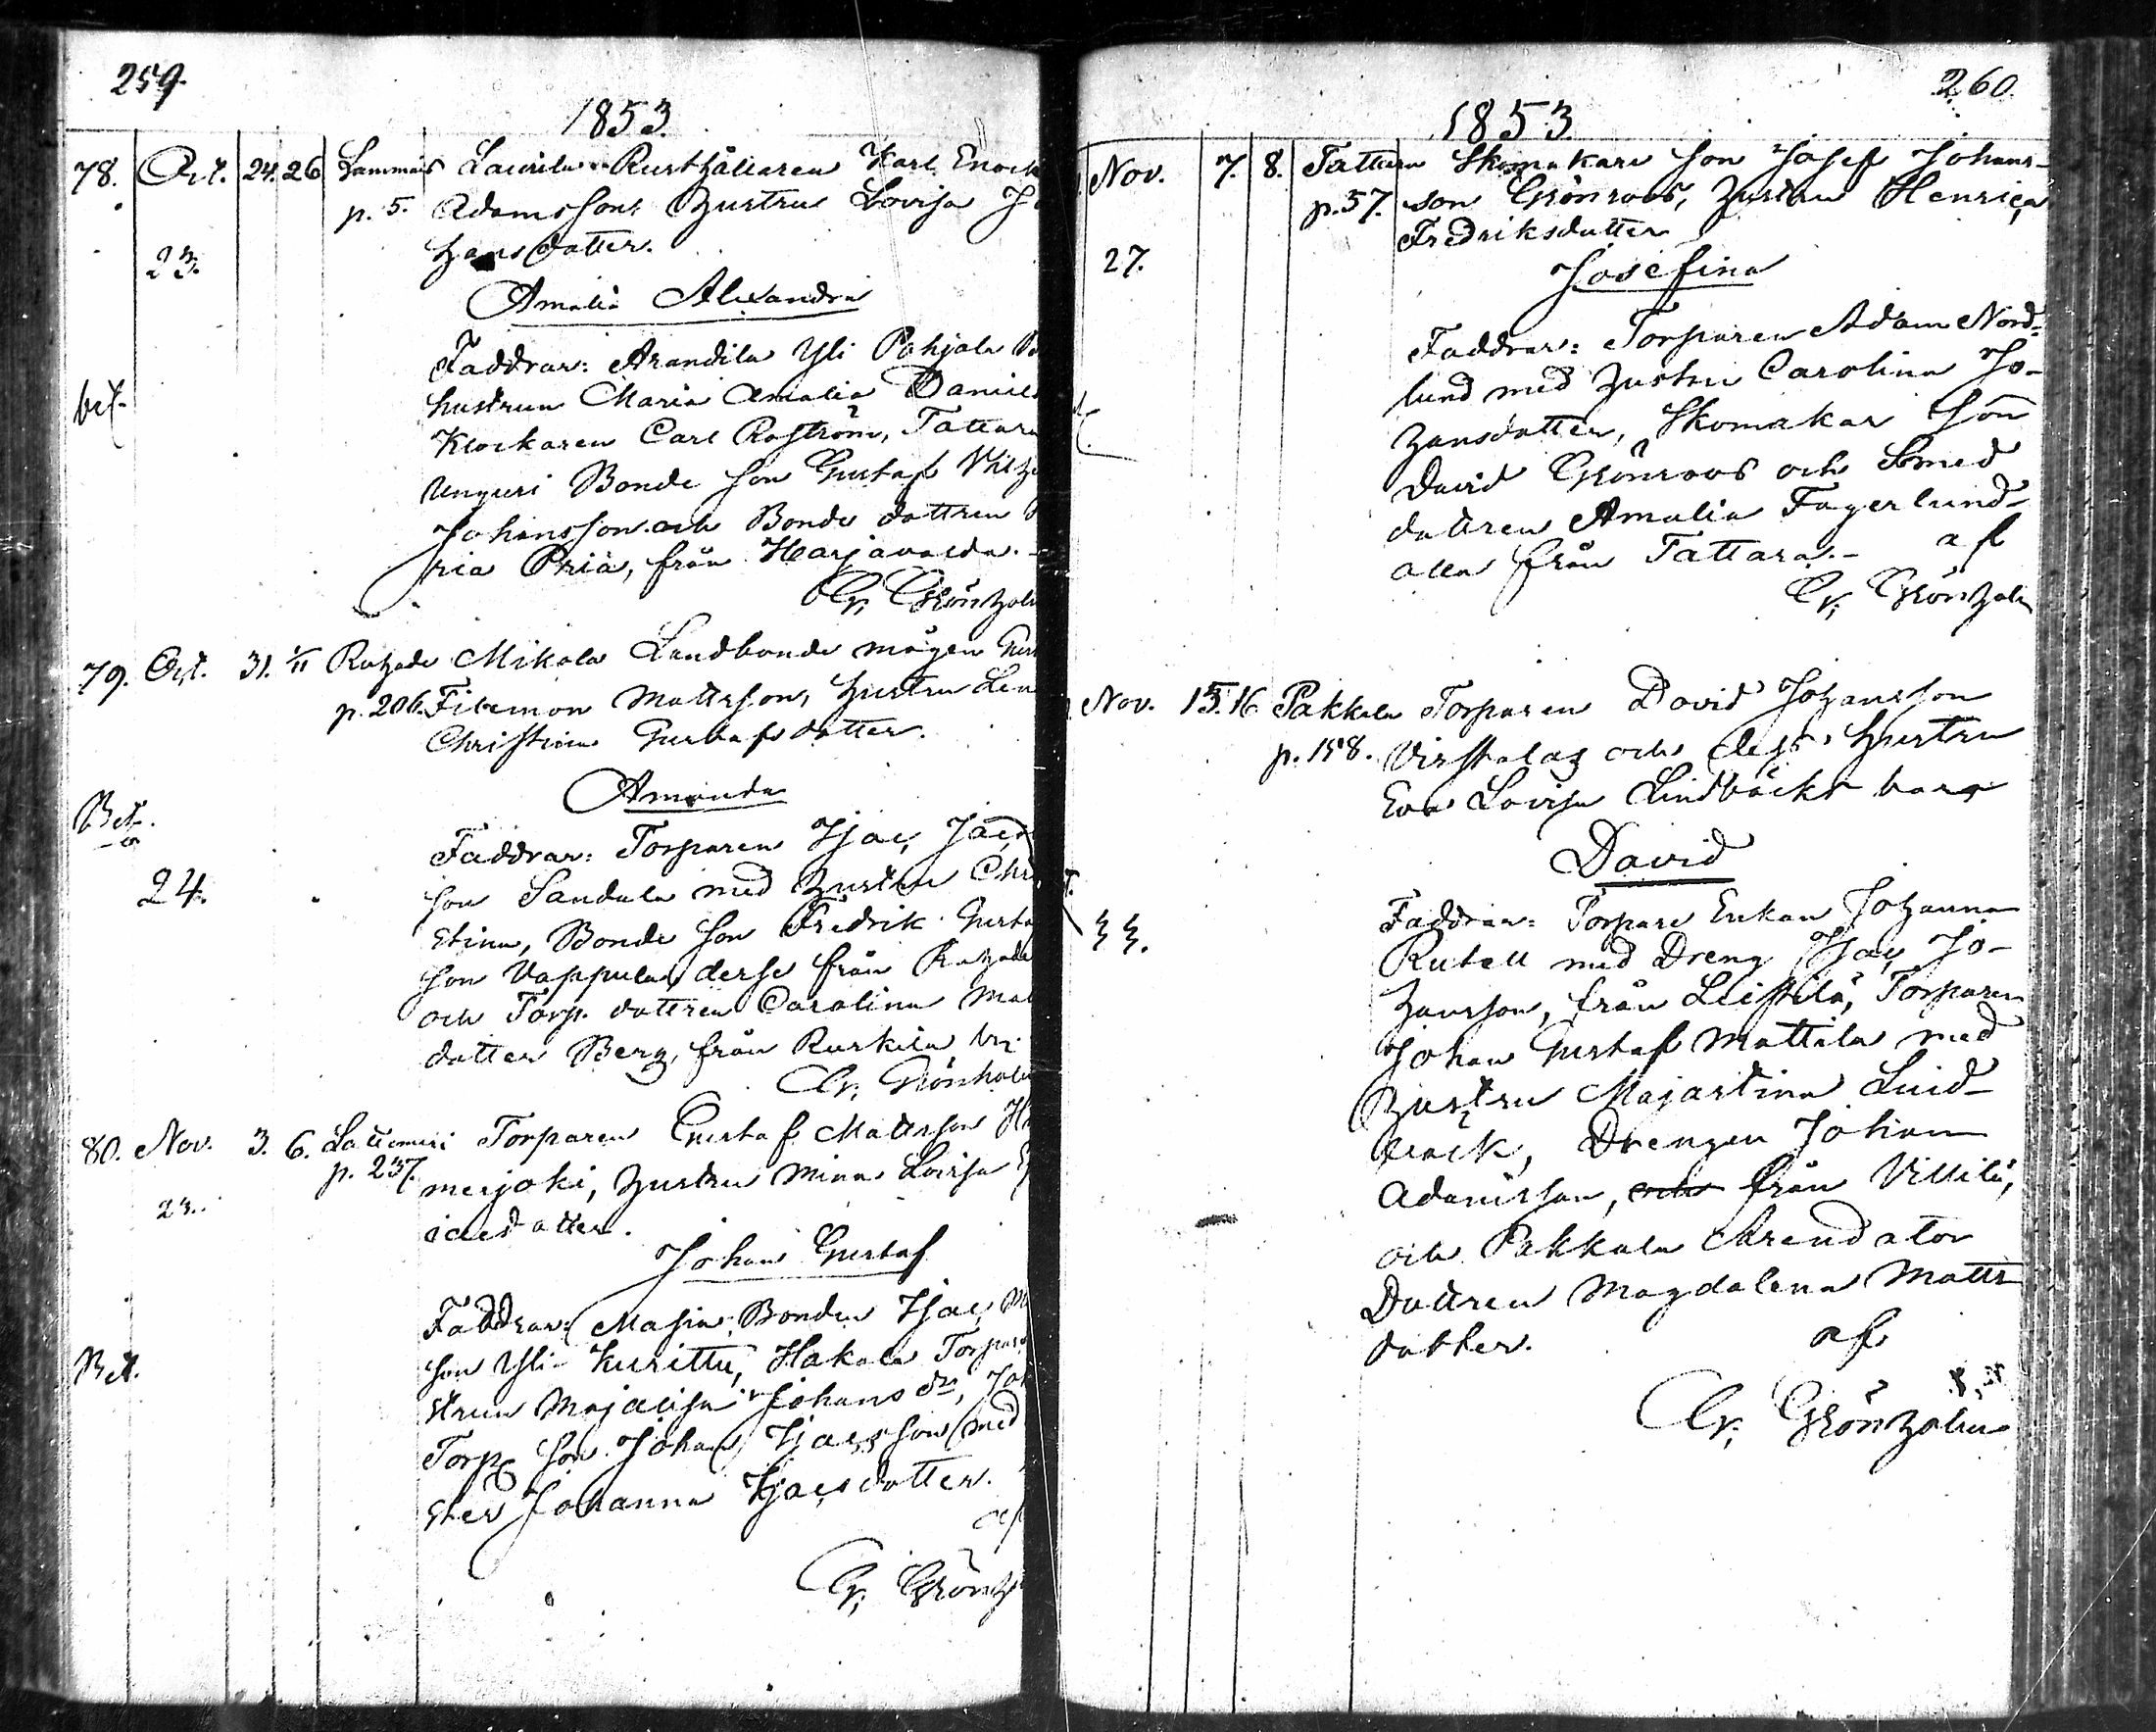 259.
1853.
78. Oct. 24. 26 Lammais Laurila Rusthållaren Karl Enock
p. 5. Adamssons hustru Lovisa Jo
23. hansdotter.
Amalia Alexandra
Faddrar: Arandila Yli Pohjala
bet. hustrun Maria Amalia Daniels
Klockaren Carl Roström, Tattara
Unguri Bonde son Gustaf Vilh
Johansson och Bonde dottren
ria Priä, från Harjavalda.
Gr. Grönholm
79. Oct. 31. 1/11 Rahade Mikola Landbonde mågen Gust
p. 206. Filemon Mattsson, hustru Lena
Christina Gustafsdotter.
Amanda
Bet.
Faddrar: Torparen Isac Jacob
24. son Sandula med hustru Chri
stina, Bonde son Fredrik Gustaf
son Vappula, desse från Rahade
och Torp. dottren Carolina Mat
dotter Berg, från Ruskila
Gr. Grönholm
80. Nov. 3. 6. Lattomeri Torparen Gustaf Mattsson
p. 237. merjoki, hustru Mina Lovisa
23. icksdotter.
Johan Gustaf
Faddrar: Masia Bonden Isac M
Bet. son Yli-Kurittu, Hakala Torpare
strun Majalisa Johans dr, Joh
Torp. son Johan Isacsson med
ster Johanna Isacsdotter.
af
Gr. Grönh
260.
1853.
Nov. 7. 8. Tattara Skomakare son Josef Johans-
p. 57. son Grönroos, hustru Henrica
27. Fredriksdotter
Josefina
Faddrar: Torparen Adam Nord-
lund med hustru Carolina Jo-
hansdotter, Skomakar son
David Grönroos och Smed
dottren Amalia Fagerlund
alla från Tattara.- af
Gr. Grönholm
Nov. 15. 16 Pakkala Torparen David Johansson
p. 158. Virstalag och dess hustru
Eva Lovisa Lindbäcks barn
David
33. Faddrar: Torpare Enkan Johanna
Rutell med Dreng Isac Jo-
hansson, från Leistilä, Torparen
Johan Gustaf Mattila med
hustru Majastina Lind-
back, Drengen Johan
Adamsson, och från Villilä,
och Pakkala Arendator
Dottren Magdalena Matts
dotter. af
Gr. Grönholm